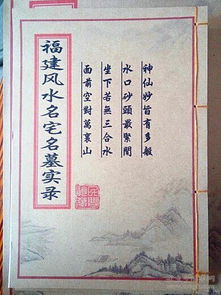 福建风水名宅名墓实录
神仙妙旨有多般
水口砂頭最緊関
坐下若無三合水
面前空對萬裏山